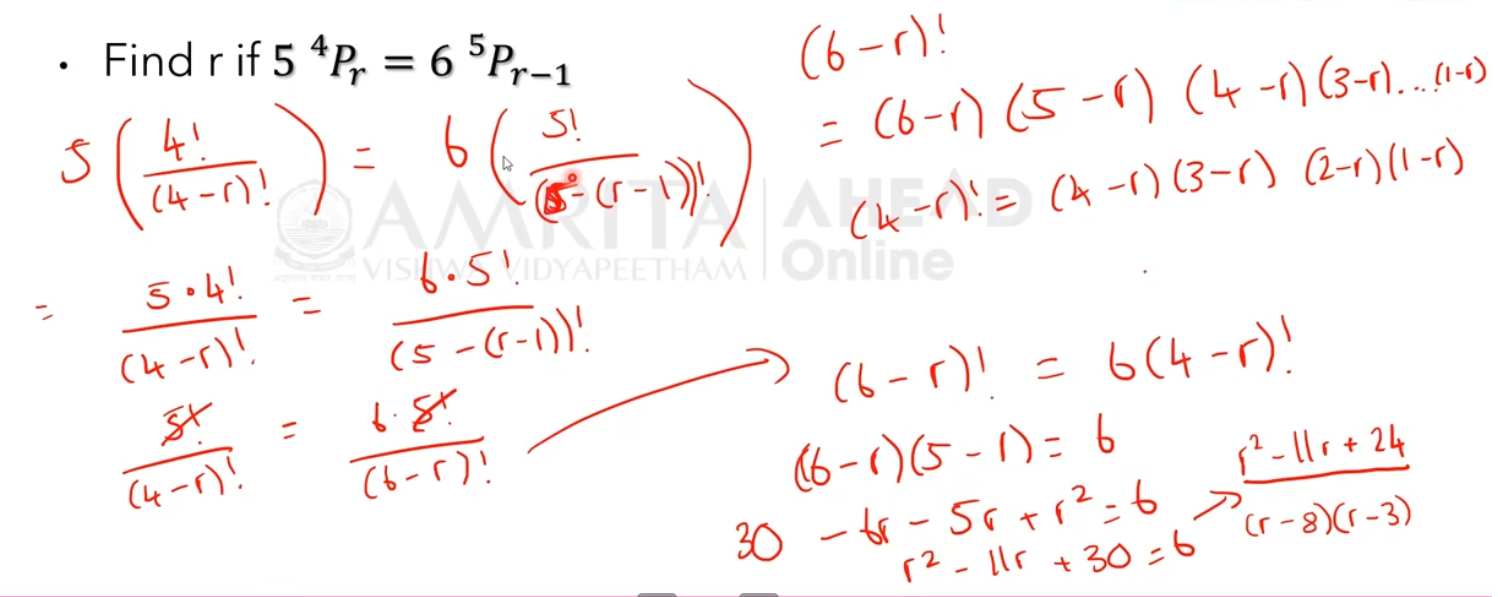 • Find r if 5 ⁴Pᵣ = 6 ⁵Pᵣ₋₁
5 ( 4! / (4-r)! ) = 6 ( 5! / (5-(r-1))! )
= 5·4! / (4-r)! = 6·5! / (5-(r-1))!
5! / (4-r)! = 6·5! / (6-r)!
(6-r)!
= (6-r) (5-r) (4-r)(3-r)...(1-r)
(4-r)! = (4-r)(3-r) (2-r)(1-r)
(6-r)! = 6(4-r)!
(6-r)(5-r) = 6
30 - 6r - 5r + r² = 6
r² - 11r + 30 = 6
→ r² - 11r + 24
(r-8)(r-3)
AMRITA | AHEAD
VISHWA VIDYAPEETHAM | Online